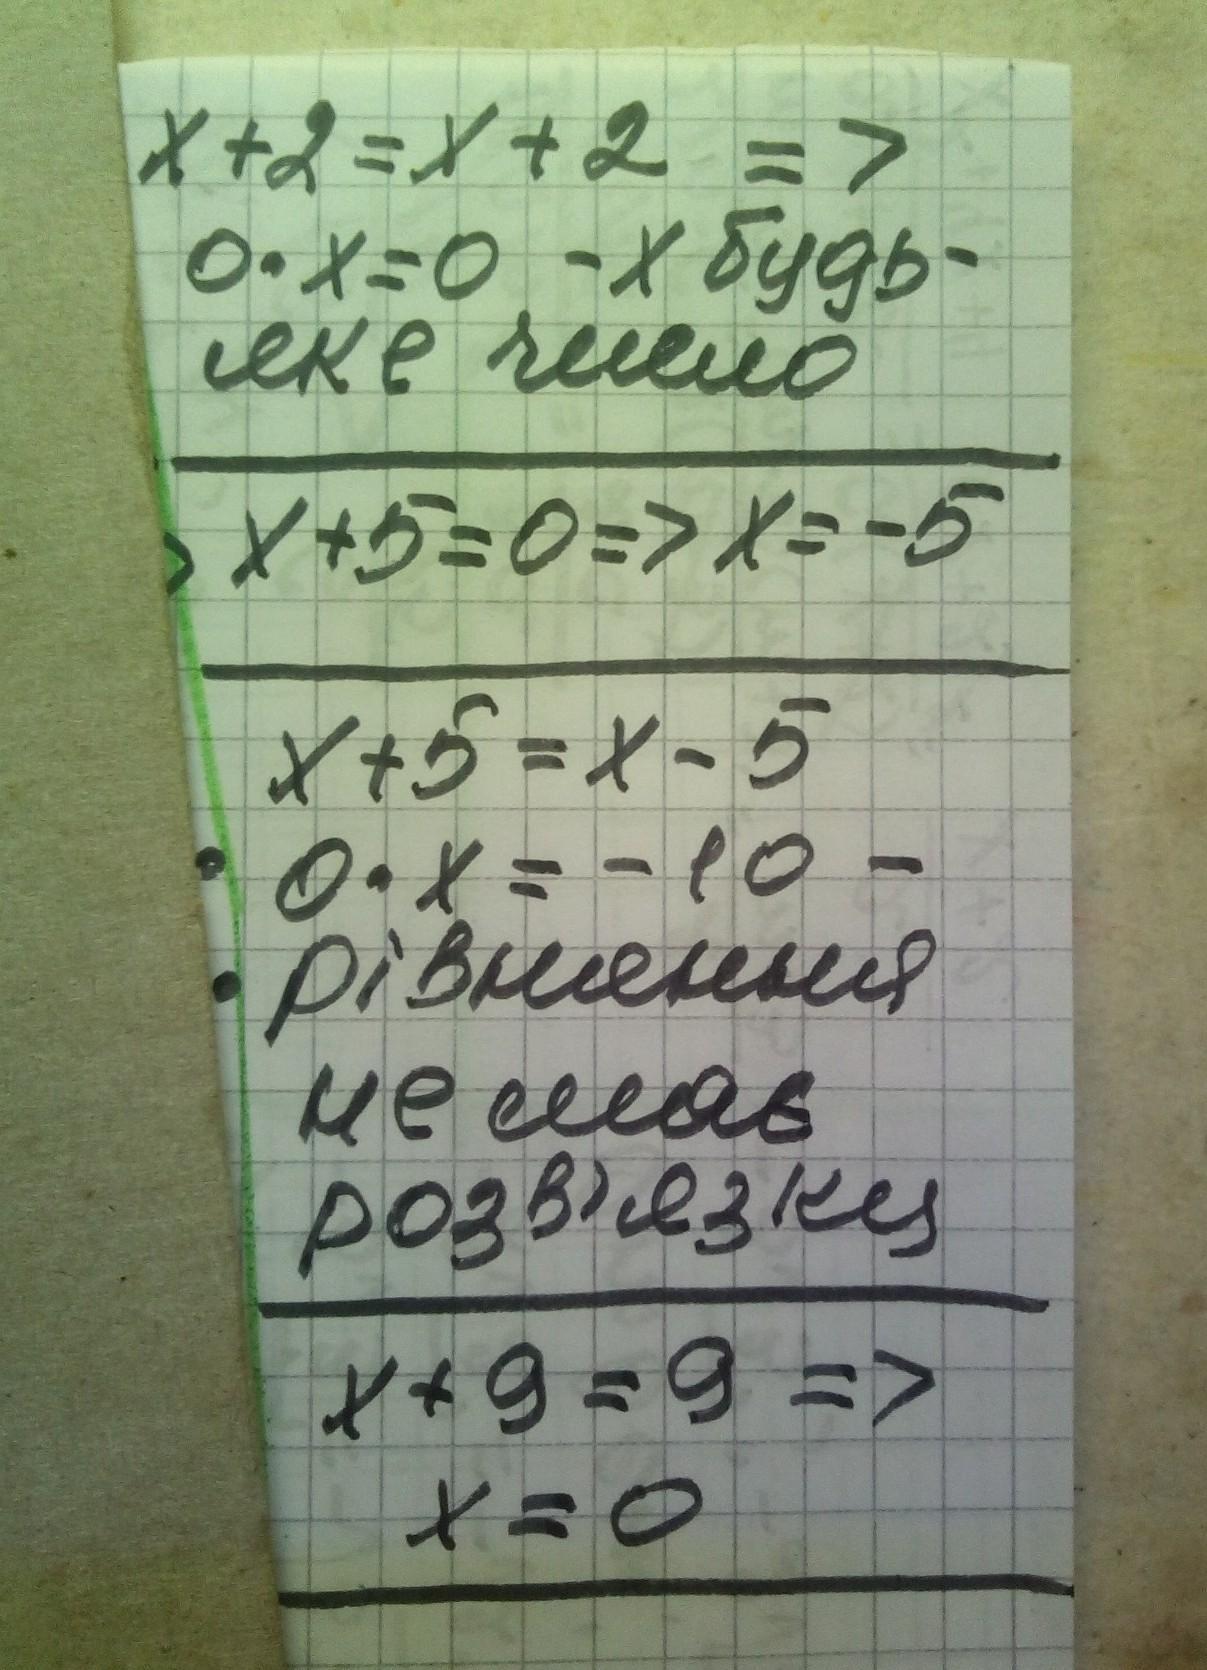 x+2=x+2 =>
0·x=0 -x будь-
яке число
x+5=0=>x=-5
x+5=x-5
0·x=-10 -
рівняння
не має
розв'язку
x+9=9 =>
x=0